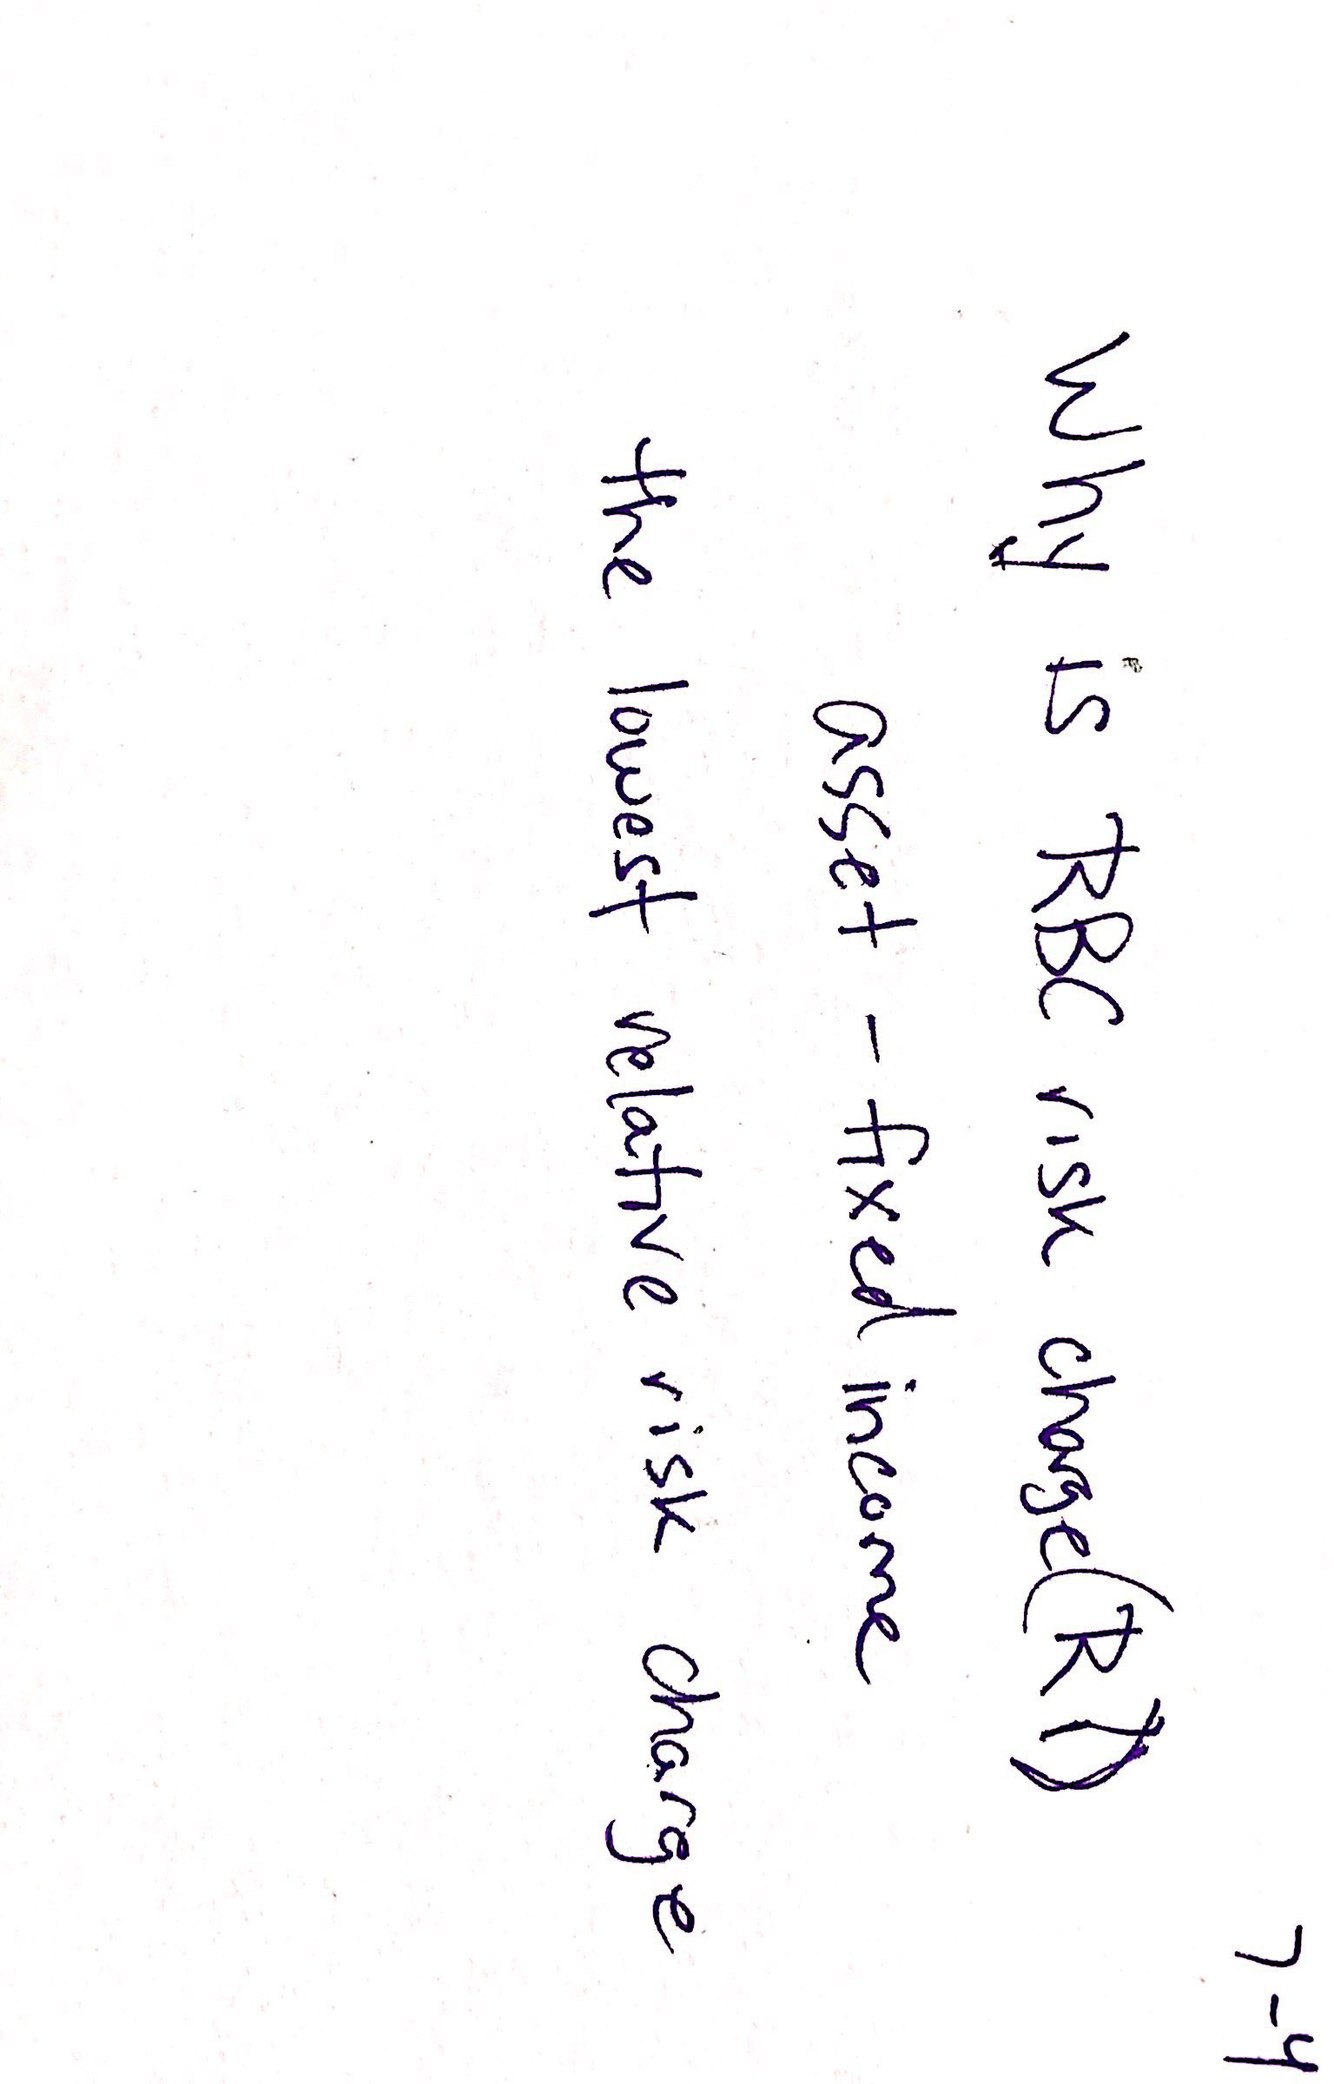 7-4
Why is RBC risk charge (R1)
asset - fixed income
the lowest relative risk charge